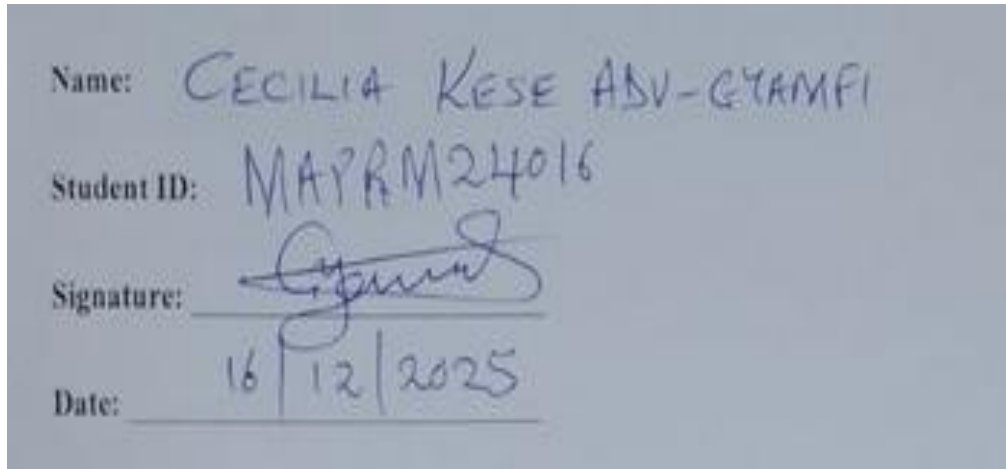 Name: CECILIA KESE ADU-GYAMFI
Student ID: MAPRM24016
Signature:
Date: 16/12/2025